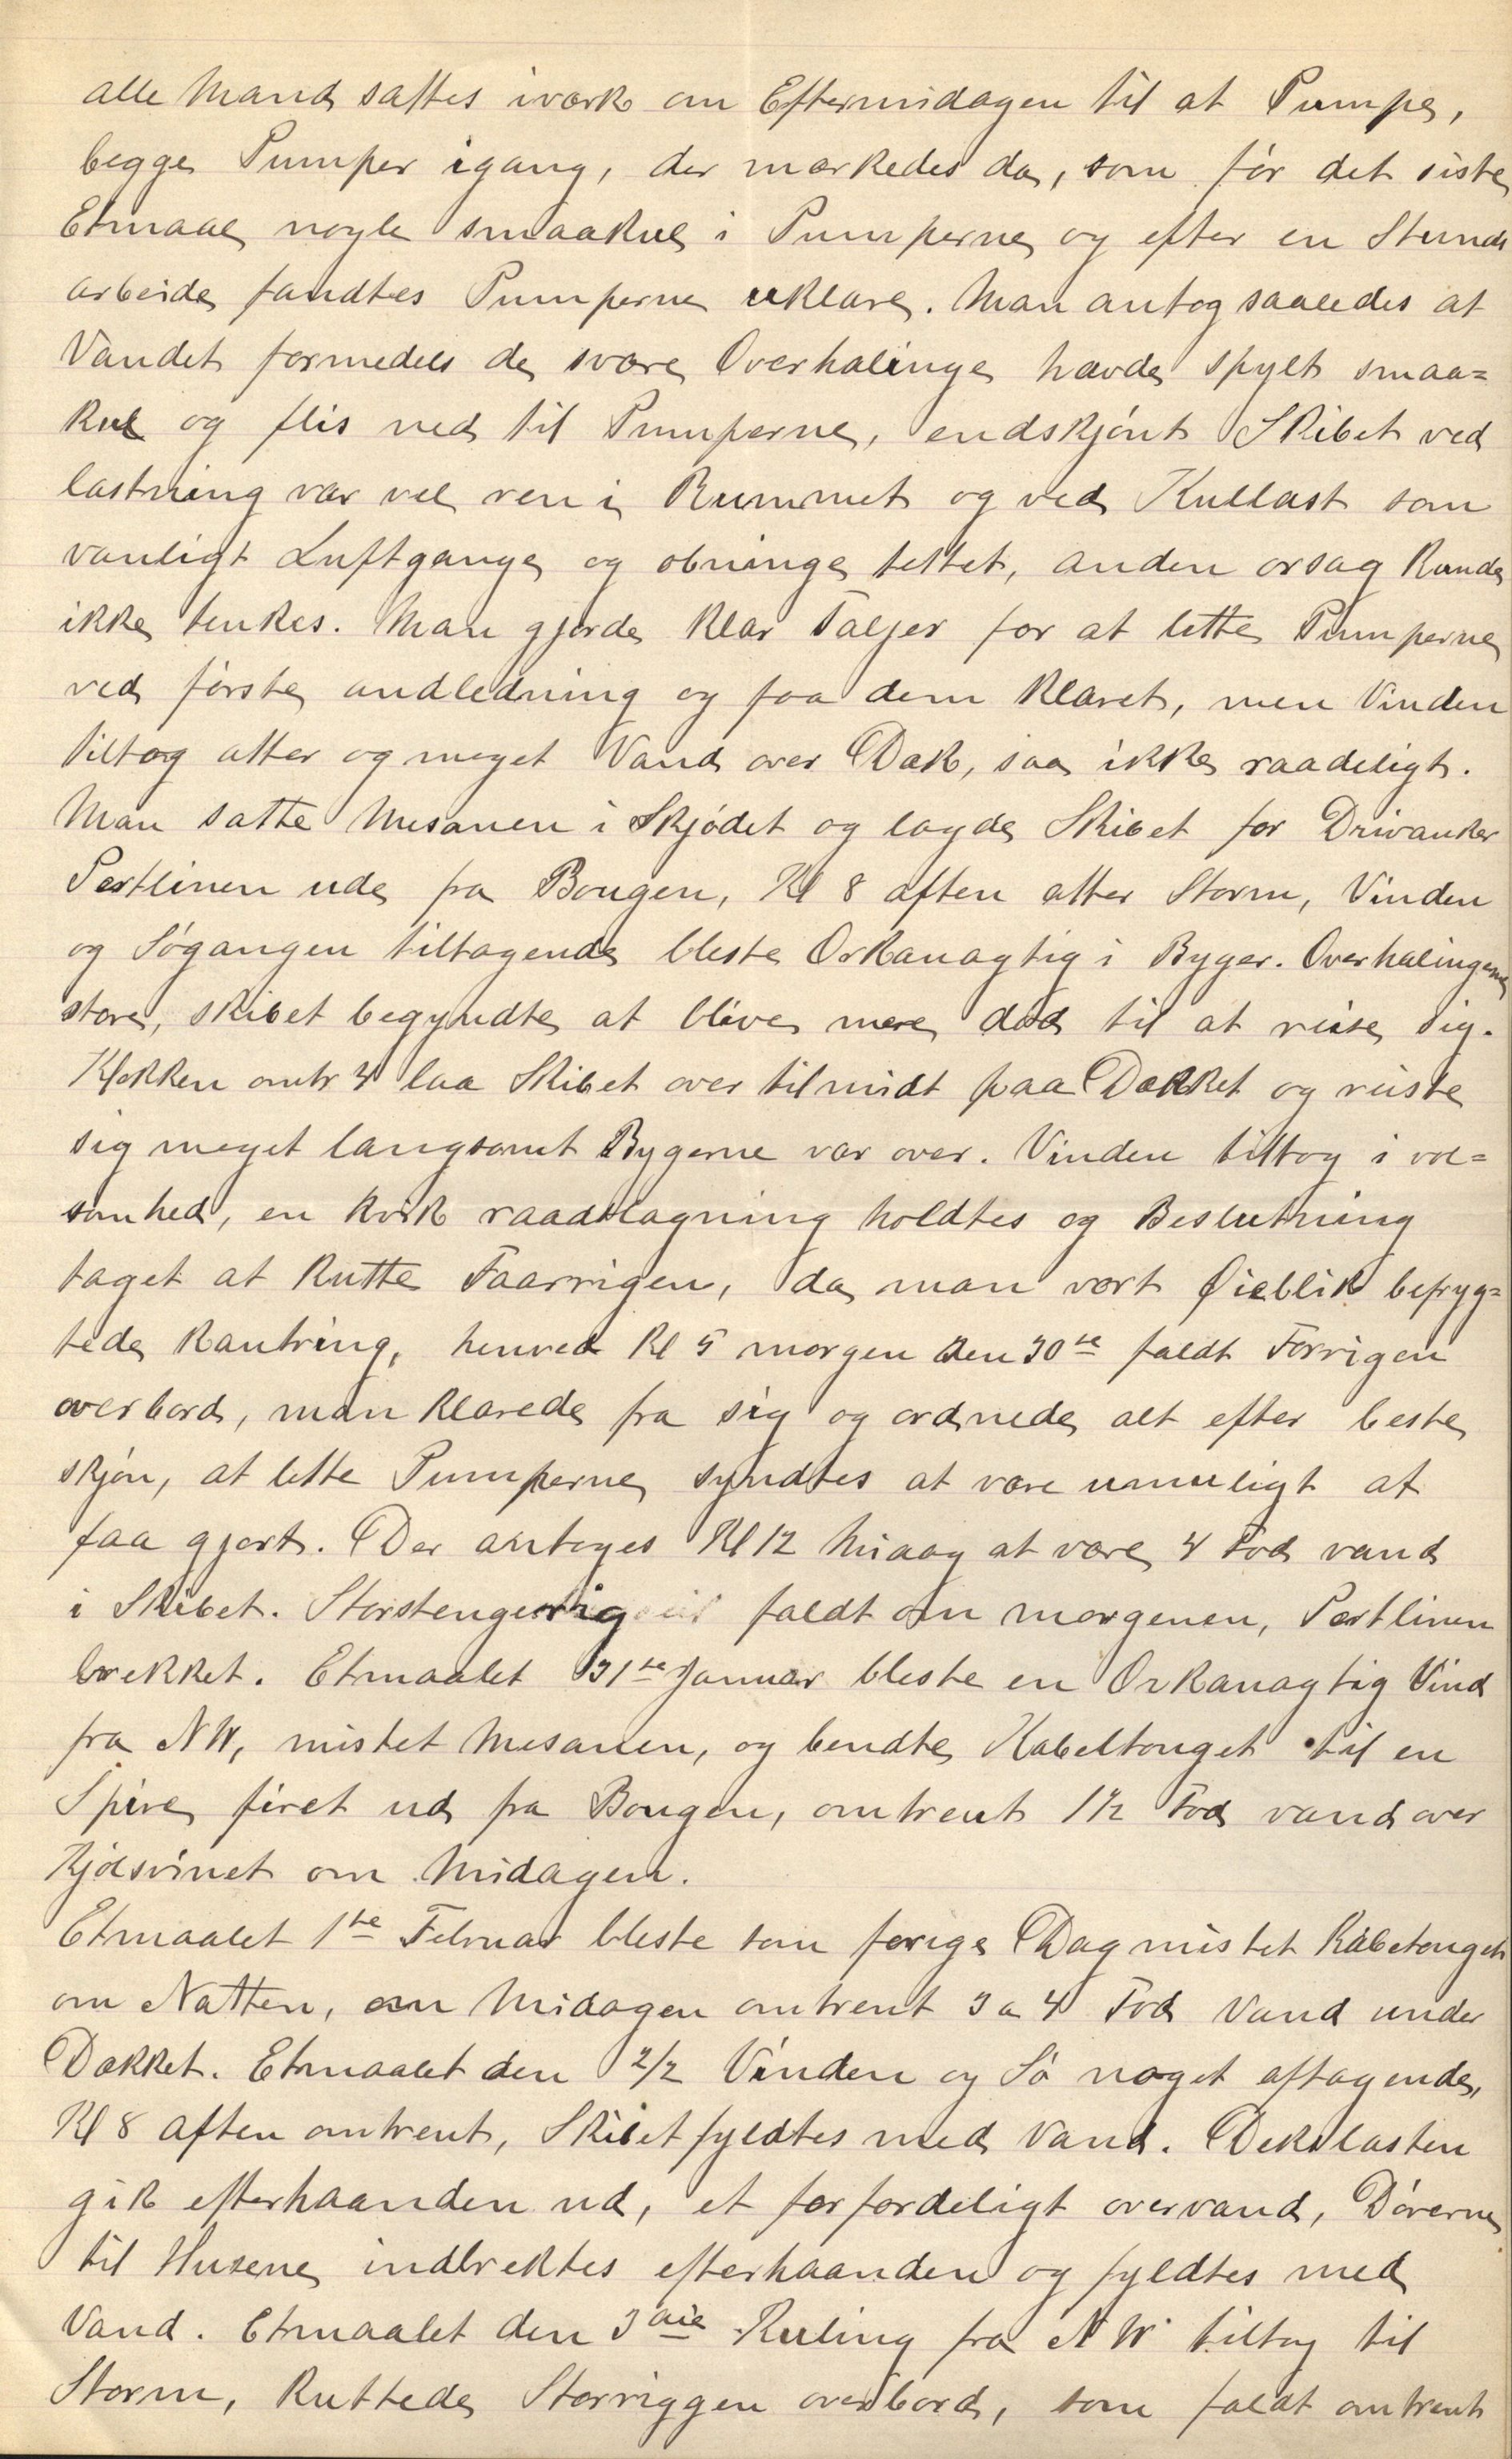 alle Mand sattes iværk om Eftermidagen til at Pumpe,
begge Pumper igang, der mærkedes da, som før det siste
Etmaal nogle smaakul i Pumperne og efter en Stunds
arbeide fandtes Pumperne uklare. Man antog saaledes at
Vandet formedels de svære Overhalinge havde spylt smaa=
kul og flis ned til Pumperne, endskjønt Skibet ved
lastning var vel ren i Rummet og ved Kullast som
vanligt Luftgange og obninge tettet, anden orsag kunde
ikke tenkes. Man gjorde klar Taljer for at lette Pumperne
ved første andledning og faa dem klaret, men Vinden
tiltog atter og meget Vand over Dæk, saa ikke raadeligt.
Man satte Mesanen i Skjødet og lagde Skibet for Drivanker
Pertlinen ude fra Bougen, Kl 8 aften atter Storm, Vinden
og Søgangen tiltagende bleste Orkanagtig i Byger. Overhalingerne
store, skibet begyndte at blive mere død til at reise sig.
Klokken omtr 4 laa Skibet over til midt paa Dækket og reiste
sig meget langsomt Bygerne var over. Vinden tiltog i vol=
somhed, en kvik raadslagning holdtes og Beslutning
taget at kutte Faarrigen, da man vært Øieblik befryg=
tede kantring, henved Kl 5 morgen den 30te faldt Forrigen
overbord, man klarede fra sig og ordnede alt efter beste
skjøn, at lette Pumperne syndtes at være umuligt at
faa gjort. Der antoges Kl 12 Midag at være 4 Fod vand
i Skibet. Storstengerig faldt om morgenen, Pertlinen
brekket. Etmaalet 31te Januar bleste en Orkanagtig Vind
fra NW, mistet Mesanen, og bendte Kabeltouget til en
Spire firet ud fra Bougen, omtrent 1½ Fod vand over
Kjølsvinet om Midagen.
Etmaalet 1te Februar bleste som forige Dag mistet Kabetouget
om Natten, om Midagen omtrent 3 a 4 Fod Vand under
Dækket. Etmaalet den 2/2 Vinden og Sø noget aftagende,
Kl 8 aften omtrent, Skibet fyldtes med Vand. Dekslasten
gik efterhaanden ud, et forfordeligt overvand, Dørerne
til Husene indbrektes efterhaanden og fyldtes med
Vand. Etmaalet den 3die Kuling fra NW tiltog til
Storm, kuttede Storriggen overbord, som faldt omtrent